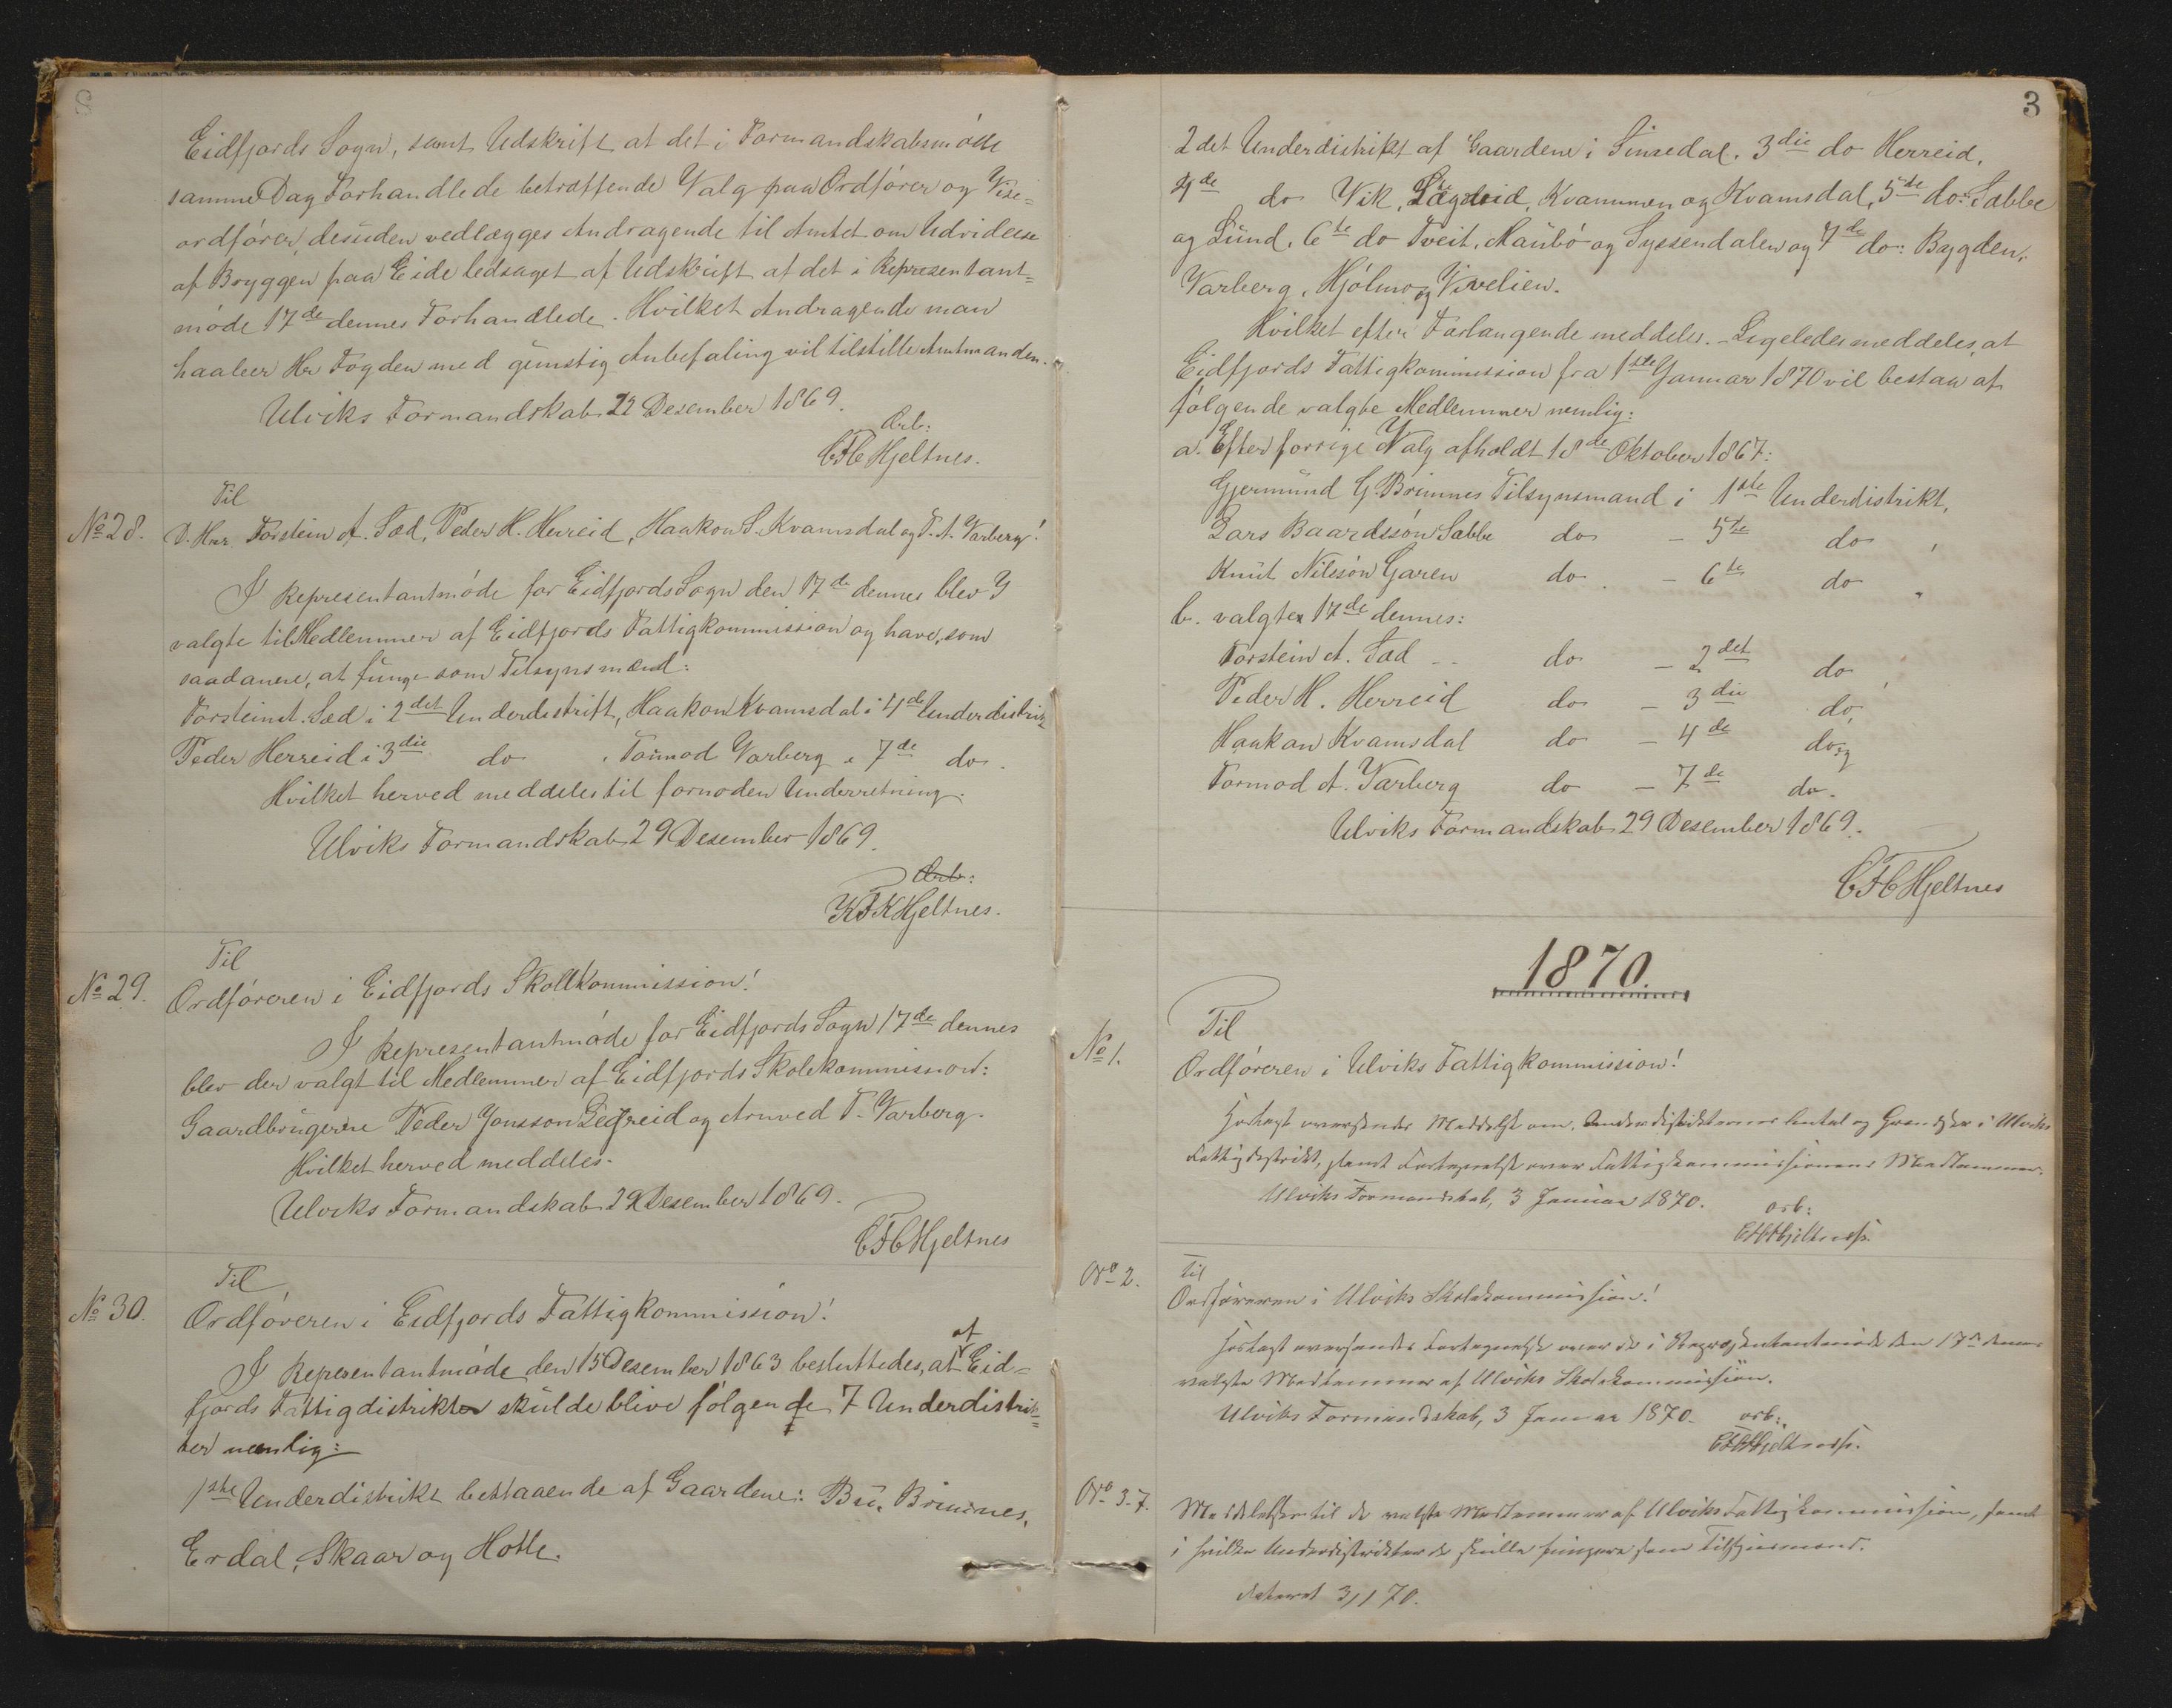 Eidfjords Sogn, samt Udskrift at det i Formandskabsmöde
samme Dag Forhandlede betræffende Valg paa Ordförer og Vise=
ordförer, desuden vedlægges Andragende til Amtet om Udvidelse
af Bryggen paa Eide ledsaget af Udskrift af det i Representant=
möde 17de dennes Forhandlede. Hvilket Andragende man
haaber Hr Fogden med gunstig Anbefaling vil tilstille Amtmanden.
Ulviks Formandskab 22 Desember 1869.
Arb:
CFC Hjeltnes.
Til
No 28. D. Hrr. Torstein A. Sæd, Peder H. Herreid, Haakon S. Kvamsdal og T. A. Varberg!
I Representantmöde for Eidfjords Sogn den 17de dennes blev I
valgte til Medlemmer af Eidfjords Fattigkommission og have, som
saadanne, at funge som Tilsynsmænd:
Torstein A. Sæd i 2det Underdistrikt, Haakon Kvamsdal i 4de Underdistrik
Peder Herreid i 3die do, Tormod Varberg i 7de do.
Hvilket herved meddeles til fornoden Underretning.
Ulviks Formandskab 29 Desember 1869.
Arb:
KFK Hjeltnes.
Til
No 29. Ordföreren i Eidfjords Skolekommission!
I Representantmöde for Eidfjords Sogn 17de dennes
blev der valgt til Medlemmer af Eidfjords Skolekommission:
Gaardbrugerne Peder Jonsson Legreid og Arnved T. Varberg.
Hvilket herved meddeles.
Ulviks Formandskab 29 Desember 1869.
CFC Hjeltnes
Til
No 30. Ordföreren i Eidfjords Fattigkommission!
I Representantmöde den 15 Desember 1863 besluttedes, at af Eid=
fjords Fattigdistrikt skulde blive fölgende 7 Underdistrik=
ter nemlig:
1ste Underdistrikt bestaaende af Gaardene: Bu, Brimnes,
Erdal, Skaar og Holle.
3
2det Underdistrikt af Gaardene i Simedal. 3die do Herreid,
4de do Vik, Lægreid, Kvammen og Kvamsdal, 5te do: Sæbbe
og Lund, 6te do Tveit, Maubö og Syssendalen og 7de do: Bygden,
Varberg, Hjölmo og Vivelien.
Hvilket efter Forlangende meddeles. - Ligeledes meddeles, at
Eidfjords Fattigkommission fra 1ste Januar 1870 vil bestaa af
fölgende valgte Medlemmer nemlig:
a. Efter forrige Valg afholdt 18de Oktober 1867:
Gjermund G. Brimnes Tilsynsmand i 1ste Underdistrikt,
Lars Baardssön Sæbbe do - 5te do,
Knut Nilssön Garen do - 6te do.
b. valgte 17de dennes:
Torstein A. Sæd - - do - 2det do,
Peder H. Herreid do - 3die do,
Haakon Kvamsdal do - 4de do, og
Tormod A. Varberg do - 7de do.
Ulviks Formandskab 29 Desember 1869.
CFC Hjeltnes
1870.
Til
No 1. Ordföreren i Ulviks Fattigkommission!
Hoslagt oversendes Meddelelse om Underdistrikternes Antal og Grændser i Ulviks
Fattigdistrikt, samt Fortegnelse over Fattigkommissionens Medlemmer.
Ulviks Formandskab, 3 Januar 1870.
arb:
CFC Hjeltnes.
Til
No 2. Ordföreren i Ulviks Skolekommission!
Hoslagt oversendes Fortegnelse over de i Repræsentantmöde den 17de dennes
valgte Medlemmer af Ulviks Skolekommission.
Ulviks Formandskab, 3 Januar 1870. arb:
CFC Hjeltnes.
No 3-7. Meddelelser til de valgte Medlemmer af Ulviks Fattigkommission, samt
i hvilke Underdistrikter de skulle fungere som Tilsynsmænd.
dateret 3/1 70.